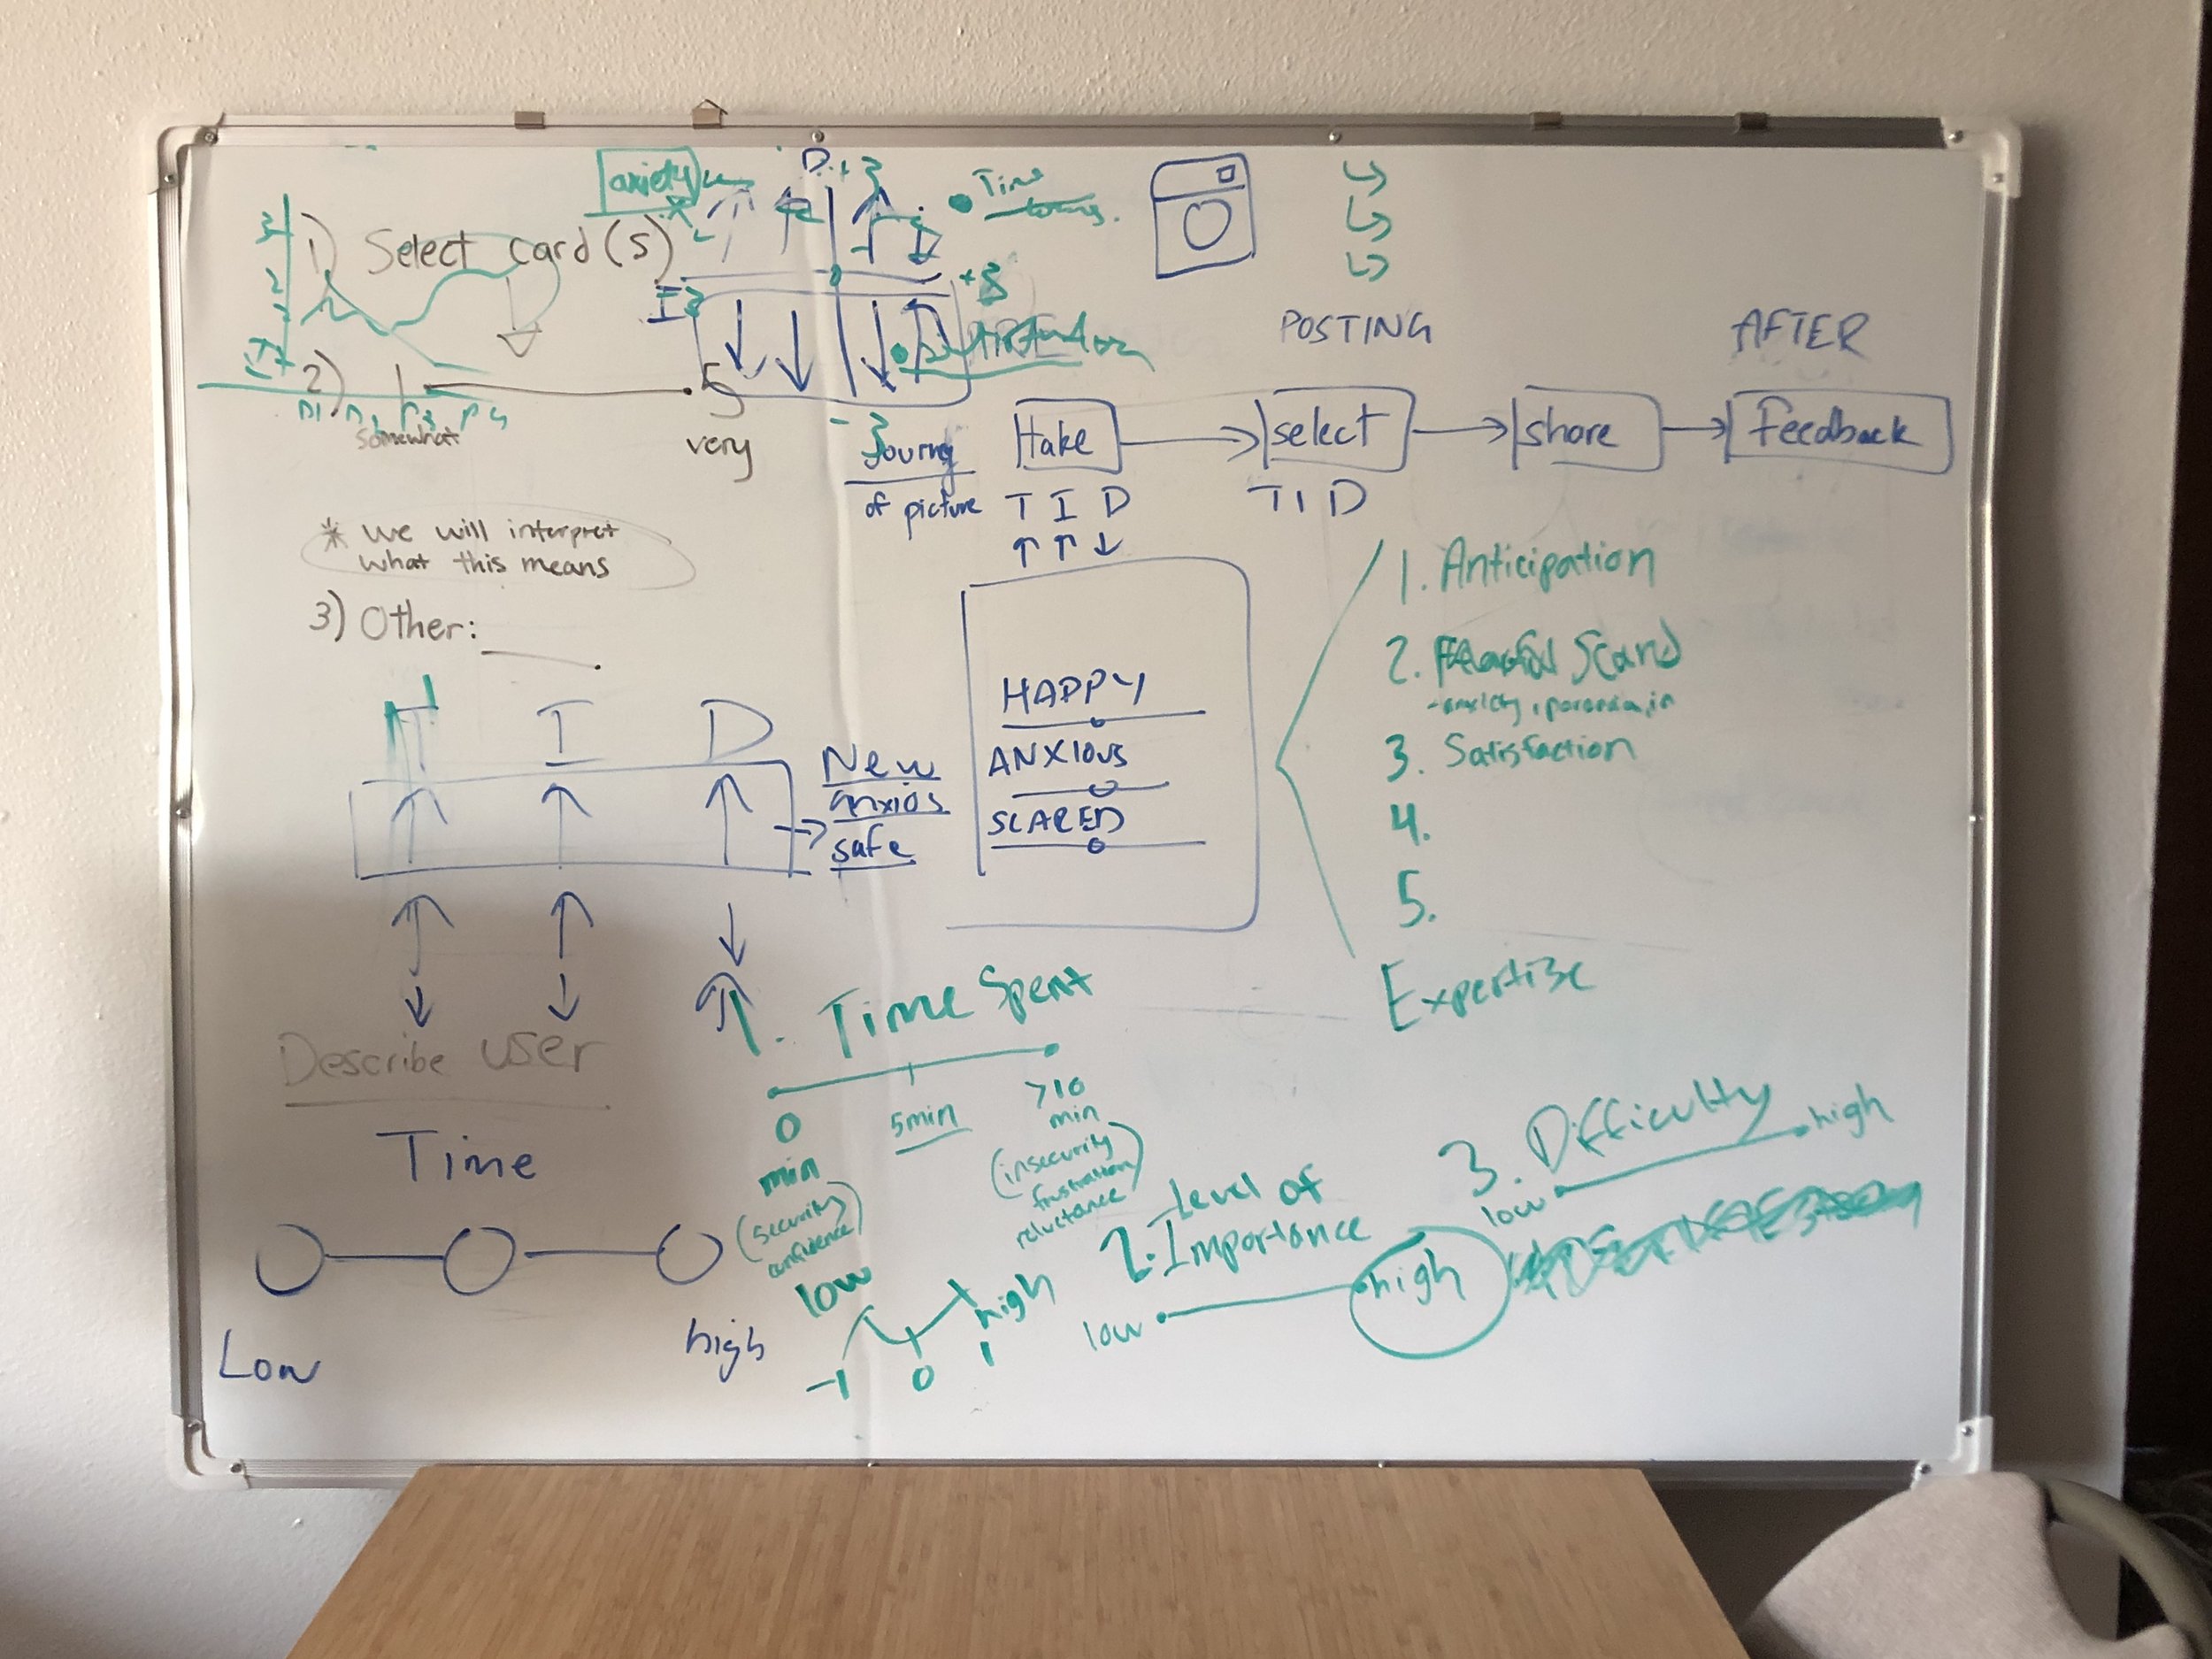 anxiety
D
+3
Time
3
1) Select card(s)
2
I
+3
2)
5
somewhat
very
-3
* we will interpret
what this means
3) Other: ____
POSTING
AFTER
Journey
of picture
take
select
share
Feedback
T I D
T I D
HAPPY
ANXIOUS
SCARED
1. Anticipation
2. Scared
- anxiety, paranoia, in
3. Satisfaction
4.
5.
Expertise
T I D
New
anxios
safe
Describe user
Time
Low
high
1. Time Spent
0
min
(security
confidence)
5min
>10
min
(insecurity
frustration
reluctance)
low
high
-1
0
1
2. Level of
Importance
low
high
3. Difficulty
low
high